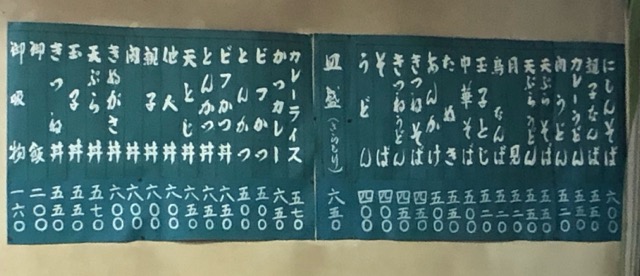 にしんそば 六〇〇
親子なんば 五五〇
カレーうどん 五五〇
肉うどん 五二〇
天ぷらそば 五五〇
天ぷらうどん 五五〇
月見 五二〇
鳥なんば 五二〇
玉子とじ 五二〇
中華そば 五〇〇
たぬき 五〇〇
あんかけ 五〇〇
きつねそば 四五〇
きつねうどん 四五〇
そば 四〇〇
うどん 四〇〇
皿盛(さらもり) 六五〇
カレーライス 五七〇
かつカレー 六五〇
ビフかつ 五五〇
とんかつ 五〇〇
ビフかつ丼 六五〇
とんかつ丼 六〇〇
天とじ丼 六五〇
他人丼 六〇〇
親子丼 六〇〇
肉丼 六〇〇
きぬがさ丼 六〇〇
天ぷら丼 五七〇
玉子丼 五五〇
きつね丼 五五〇
御飯 二〇〇
御吸物 一六〇